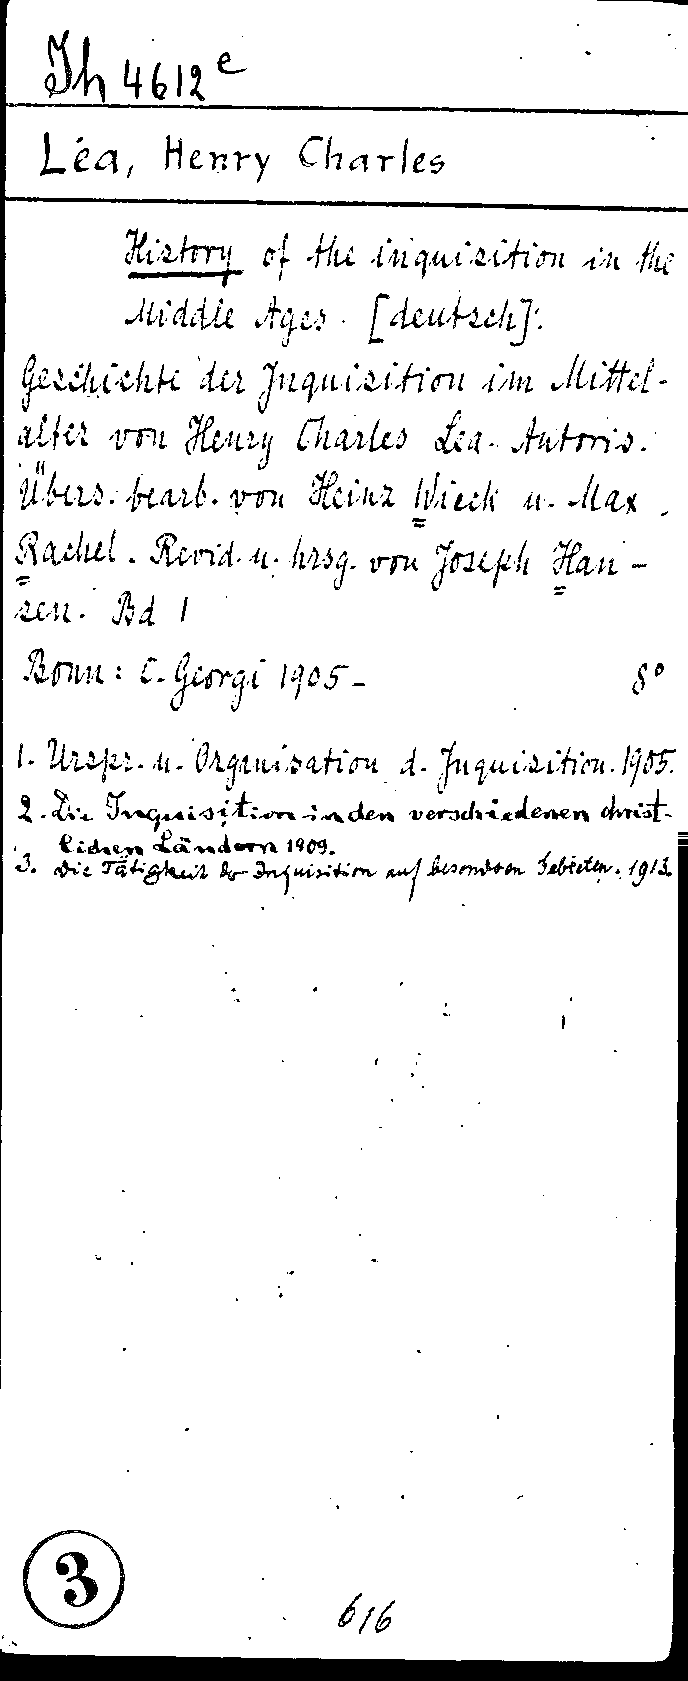 Th 4612 e
Lea, Henry Charles
History of the inquisition in the
Middle Ages. [deutsch]:
Geschichte der Inquisition im Mittel-
alter von Henry Charles Lea. Autoris.
Übers. bearb. von Heinz Wieck u. Max
Rachel. Revid. u. hrsg. von Joseph Han-
sen. Bd 1
Bonn: C. Georgi 1905-   8°
1. Urspr. u. Organisation d. Inquisition. 1905.
2. Die Inquisition in den verschiedenen christ-
lichen Ländern 1909.
3. Die Tätigkeit der Inquisition auf besonderen Gebieten. 1913.
3
616